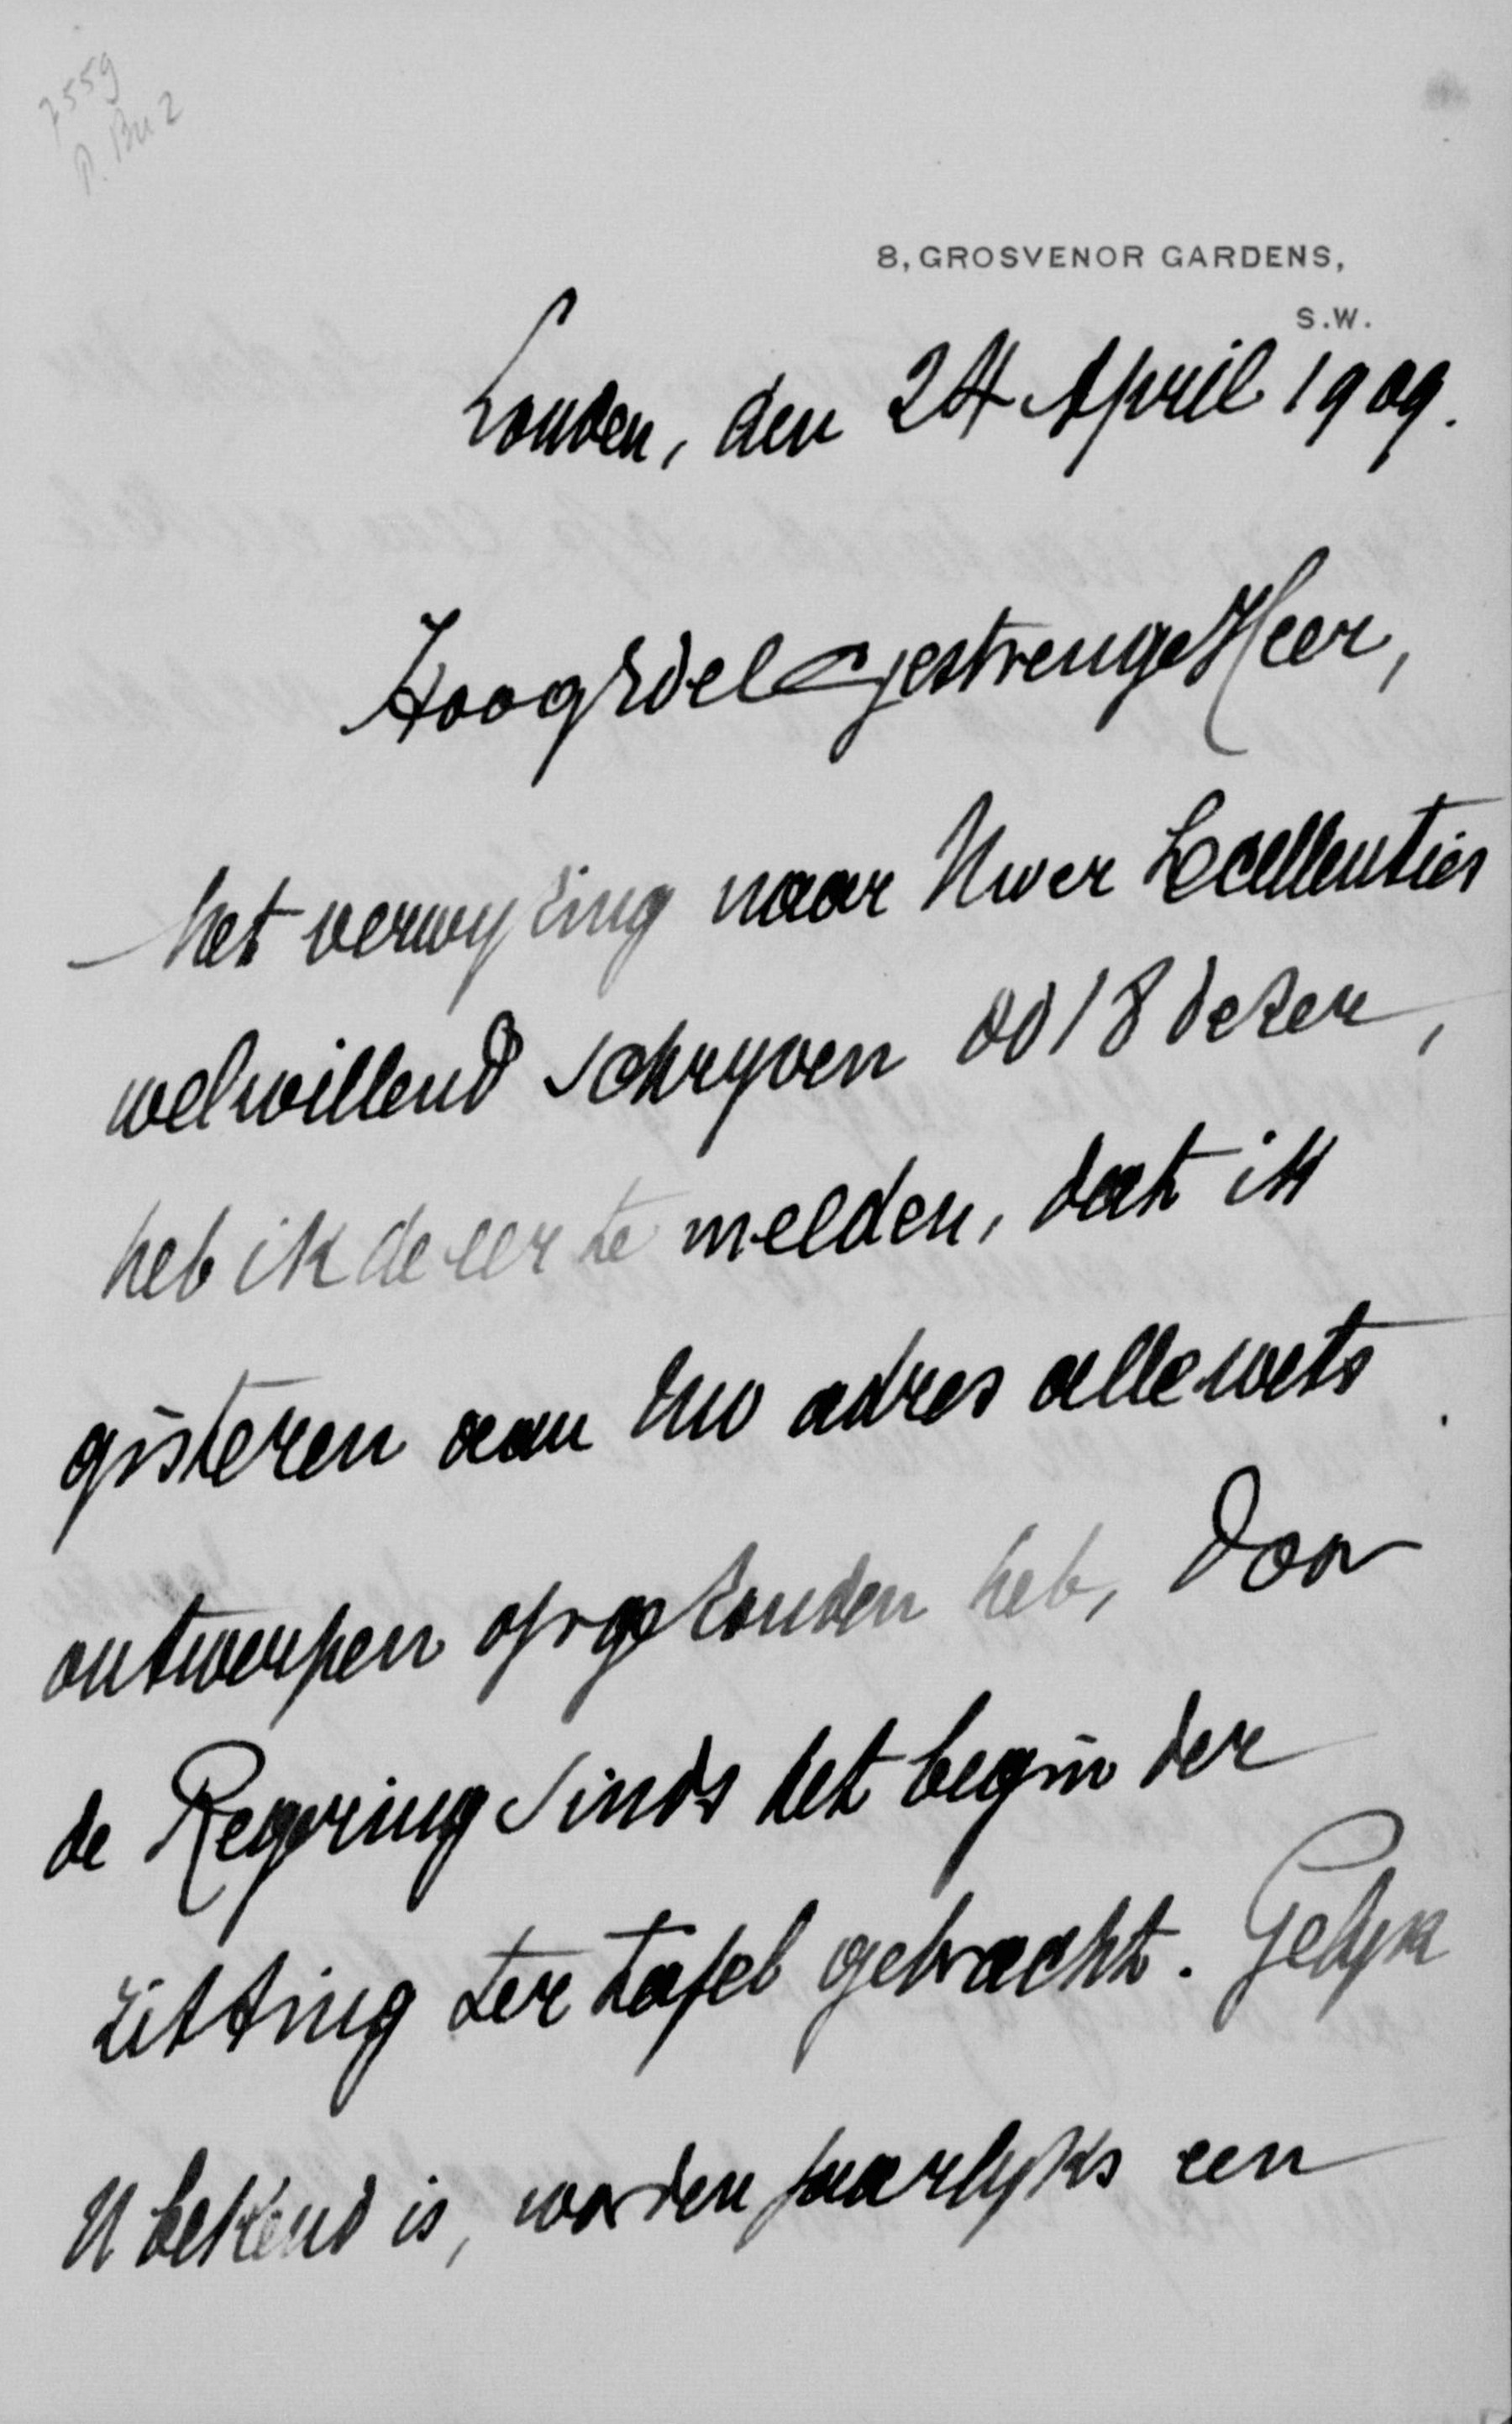 7559
P. Bu 2
8, GROSVENOR GARDENS,
S.W.
Londen, den 24 April 1909.
HoogEdelGestrenge Heer,
Met verwyzing naar Uwer Excellenties
welwillend schryven dd 18 dezer,
heb ik de eer te melden, dat ik
gisteren aan Uw adres alle wets
ontwerpen opgezonden heb, door
de Regering sinds het begin der
zitting ter tafel gebracht. Gelyk
U bekend is, worden jaarlyks een